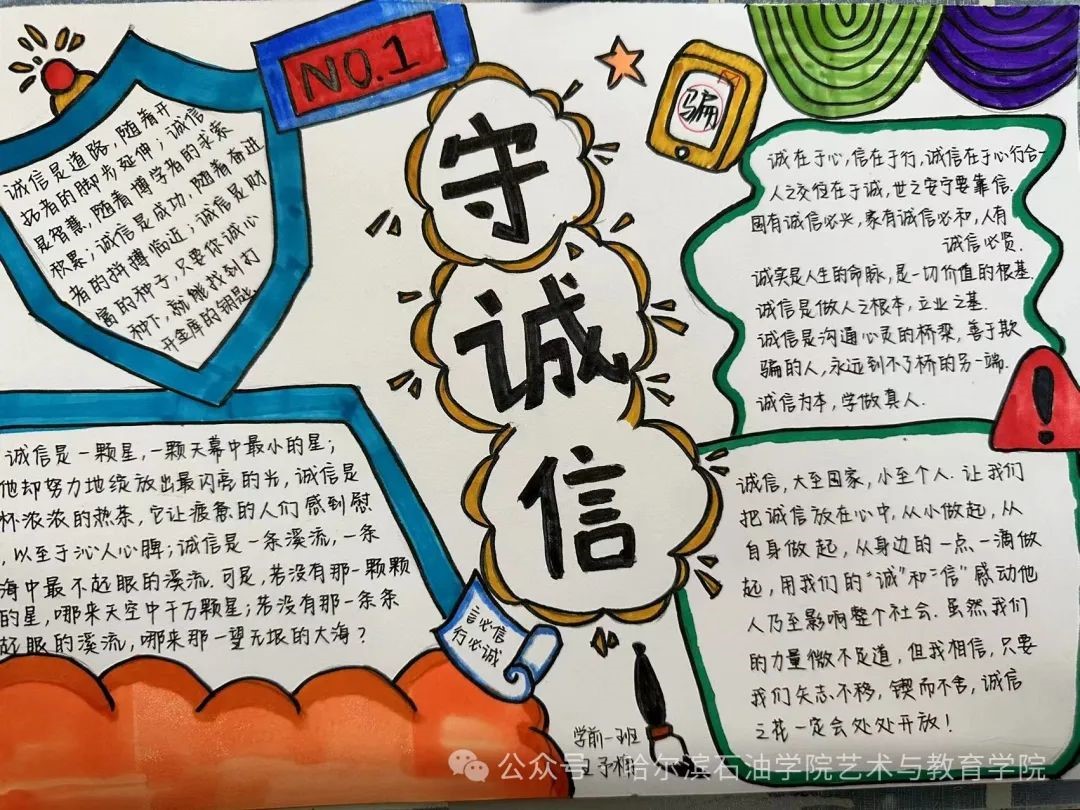 NO.1
守
诚
信
骗
诚信是道路，随着开
拓者的脚步延伸；诚信
是智慧，随着博学者的求索
积累；诚信是成功，随着奋进
者的拼搏临近；诚信是财
富的种子，只要你诚心
种下，就能找到打
开金库的钥匙。
诚在于心，信在于行，诚信在于心行合一
人之交往在于诚，世之安宁要靠信.
国有诚信必兴，家有诚信必和，人有
诚信必贤.
诚实是人生的命脉，是一切价值的根基.
诚信是做人之根本，立业之基.
诚信是沟通心灵的桥梁，善于欺
骗的人，永远到不了桥的另一端.
诚信为本，学做真人.
诚信是一颗星，一颗天幕中最小的星；
他却努力地绽放出最闪亮的光，诚信是
杯浓浓的热茶，它让疲惫的人们感到慰
，以至于沁人心脾；诚信是一条溪流，一条
海中最不起眼的溪流.可是，若没有那一颗颗
的星，哪来天空中千万颗星；若没有那一条条
起眼的溪流，哪来那一望无垠的大海？
言必信
行必诚
诚信，大至国家，小至个人.让我们
把诚信放在心中，从小做起，从
自身做起，从身边的一点一滴做
起，用我们的“诚”和“信”感动他
人乃至影响整个社会.虽然我们
的力量微不足道，但我相信，只要
我们矢志不移，锲而不舍，诚信
之花一定会处处开放！
学前一班
公众号 哈尔滨石油学院艺术与教育学院